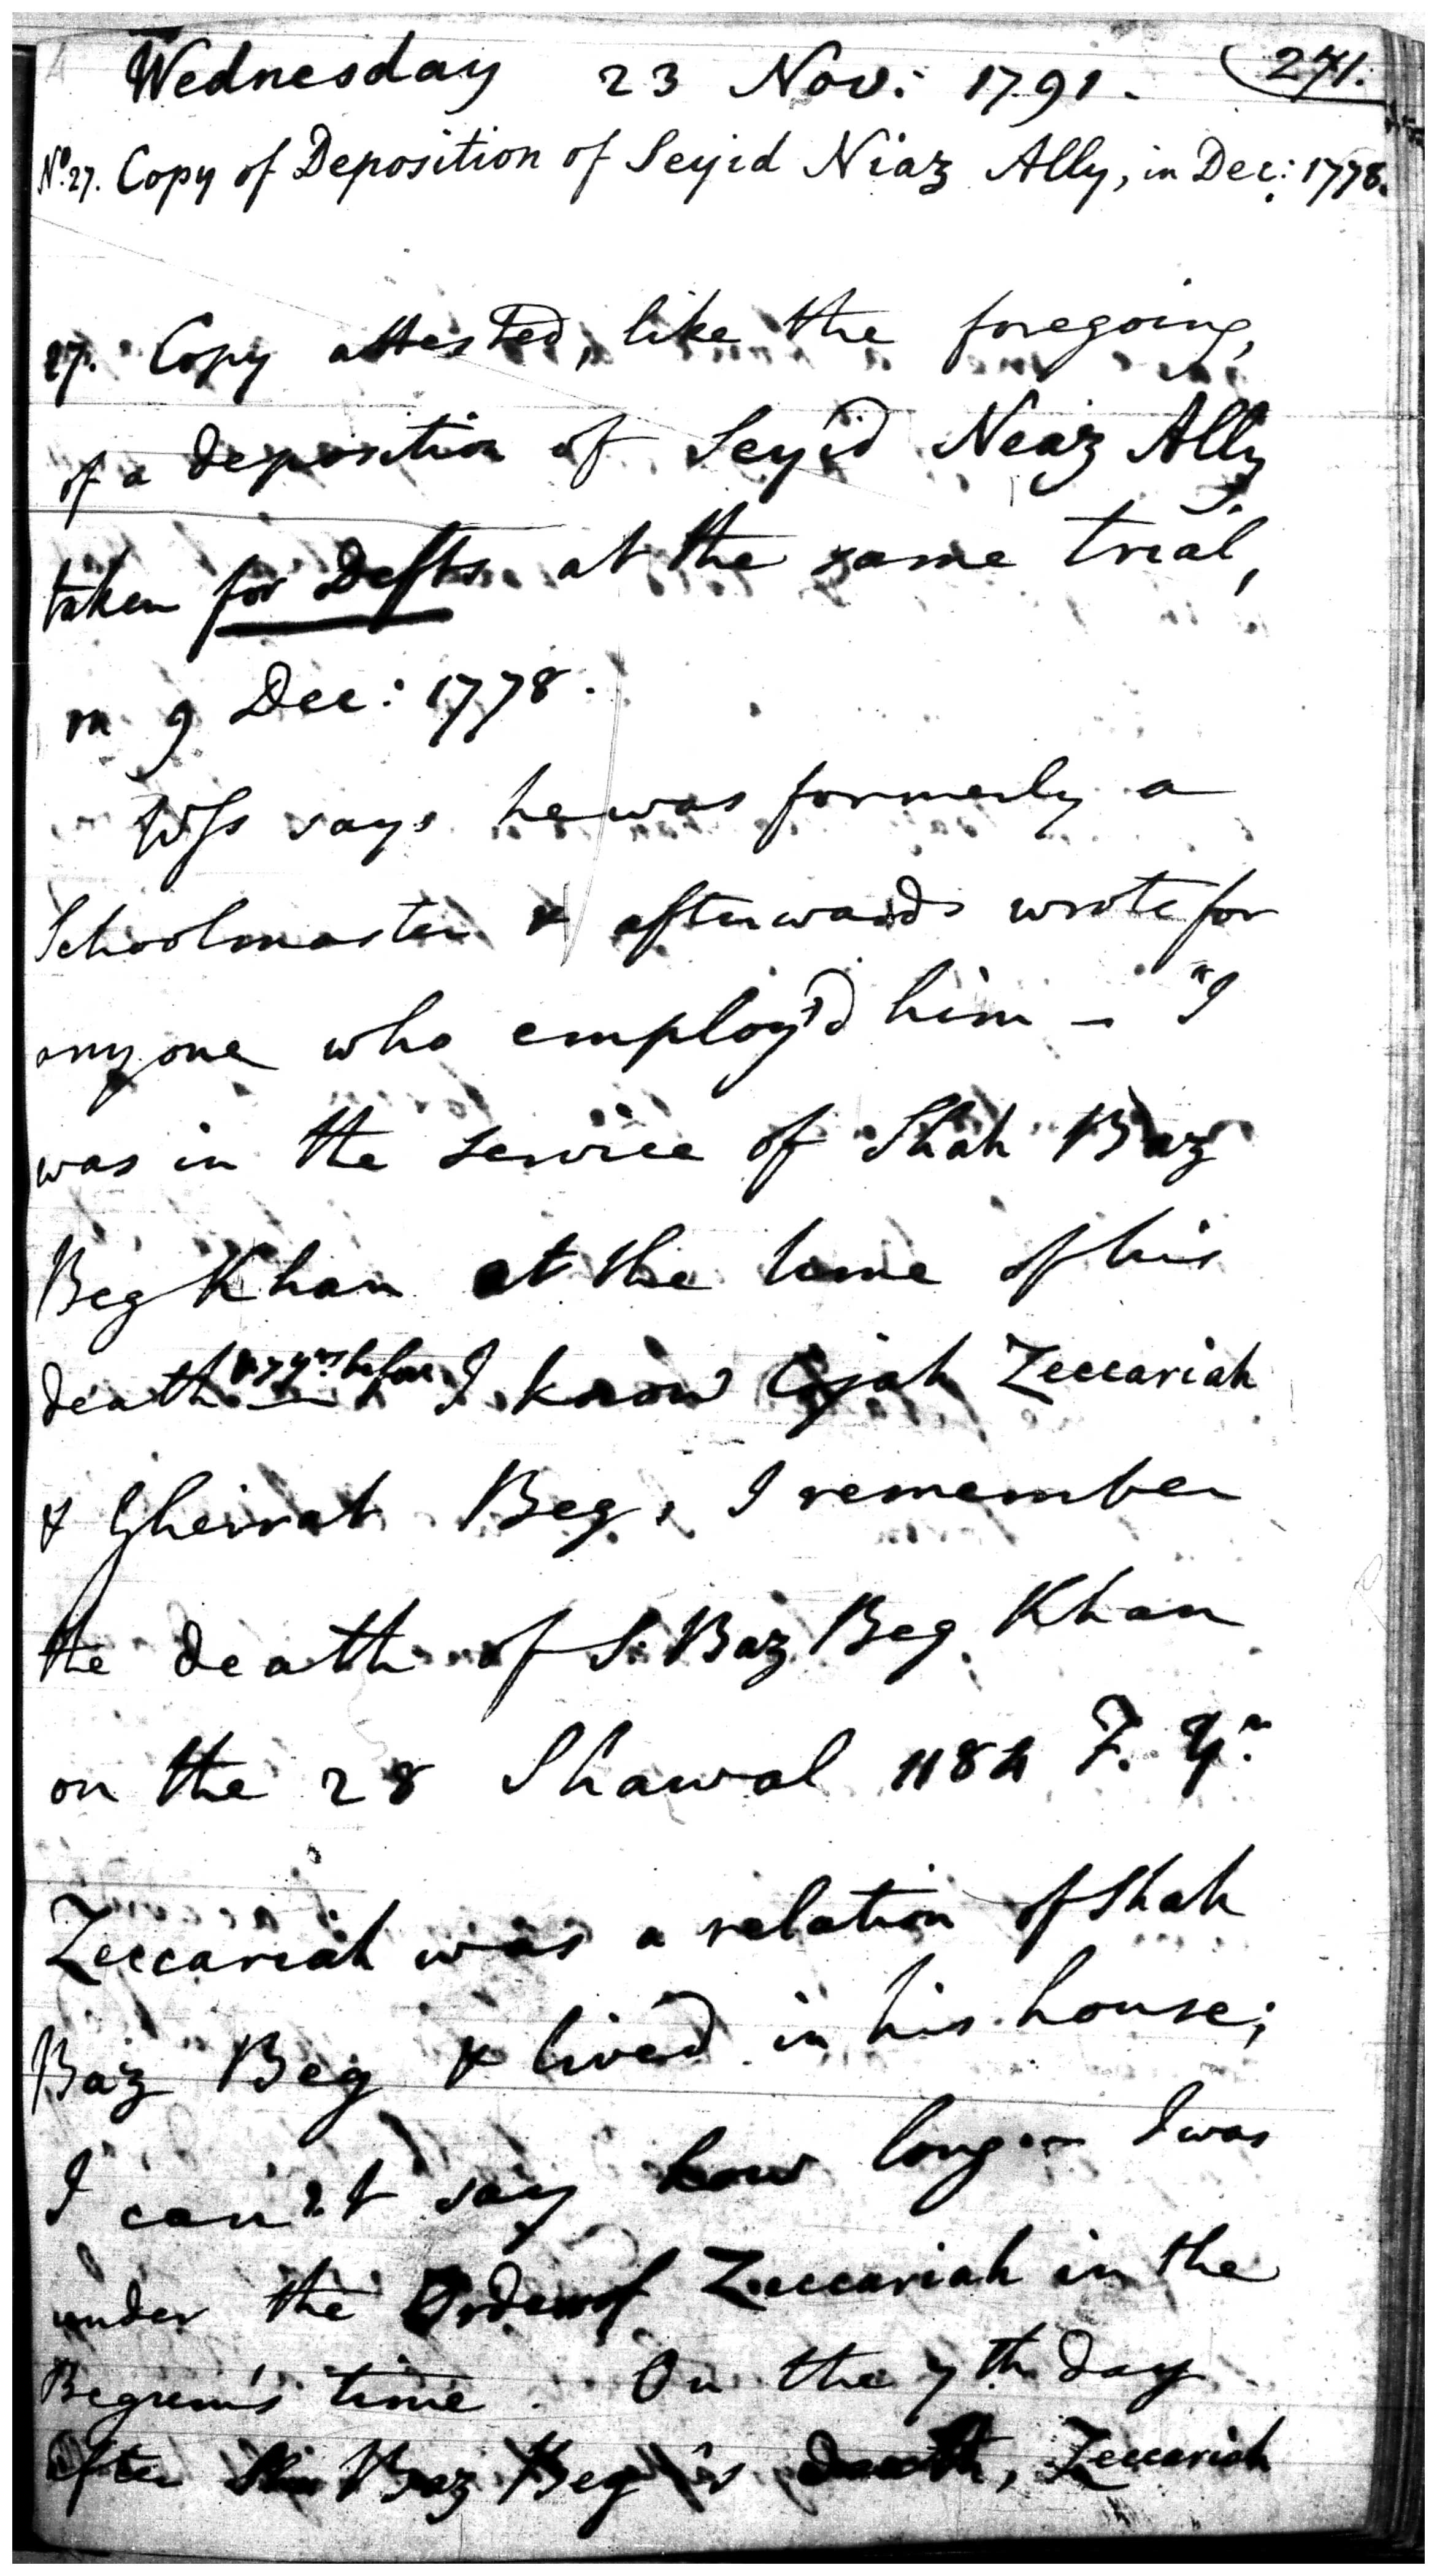 Wednesday 23 Nov: 1791. 271.
No. 27. Copy of Deposition of Seyid Niaz Ally, in Dec: 1778.
27. Copy attested, like the foregoing,
of a deposition of Seyid Neaz Ally
taken for Defts at the same trial,
on 9 Dec: 1778.
Wss says he was formerly a
Schoolmaster & afterwards wrote for
anyone who employ'd him – "I
was in the service of Shah Baz
Beg Khan at the time of his
death & 7 yrs before I know Cojah Zeccariah
& Gheirat Beg, I remember
the death of S. Baz Beg Khan
on the 28 Shawal 1184 F. Yr.
Zeccariah was a relation of Shah
Baz Beg & lived in his house;
I can't say how long – I was
under the Orders of Zeccariah in the
Begum's time. On the 7th day
After Baz Beg's death, Zeccariah